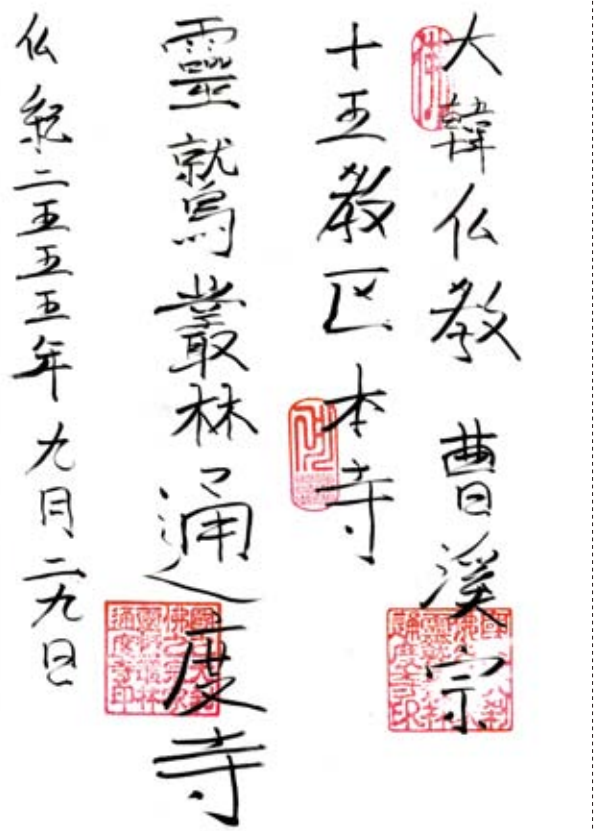 大韓仏教 曹溪宗
十五教区本寺
靈鷲叢林 通度寺
仏紀二五五五年 九月二九日
靈鷲叢林
通度寺印